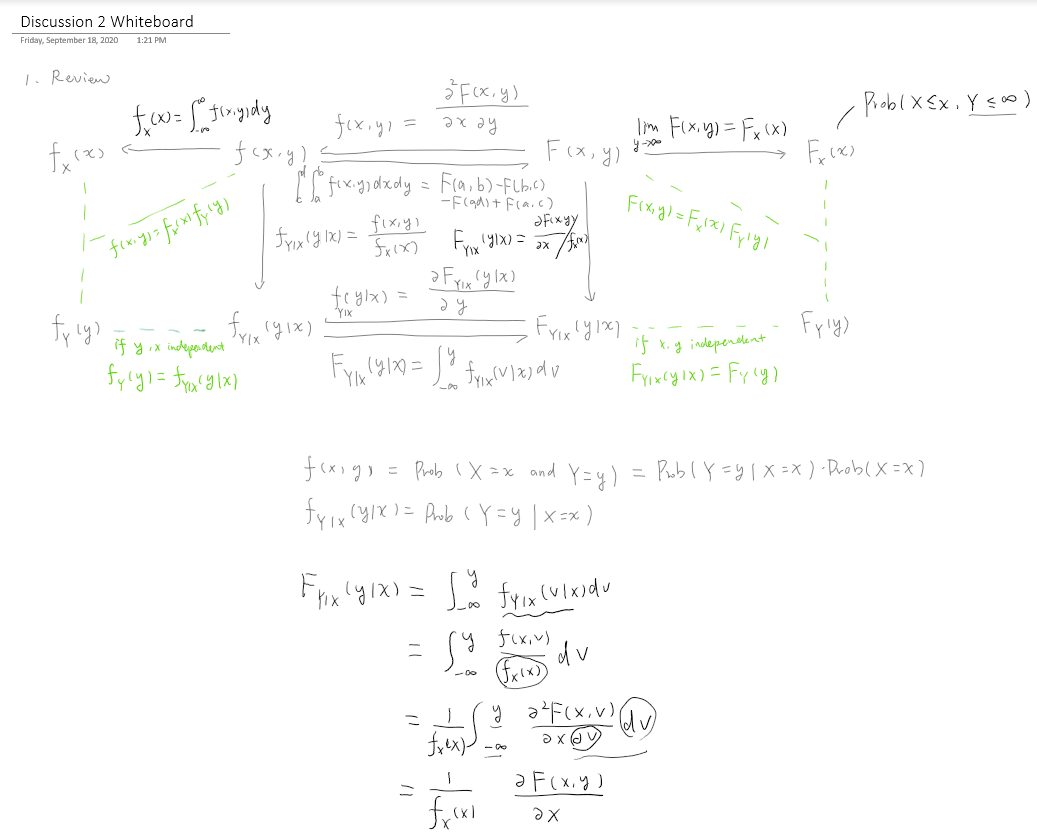 Discussion 2 Whiteboard
Friday, September 18, 2020 1:21 PM
1. Review
f_X(x) = ∫_{-∞}^{∞} f(x,y)dy
f(x,y) = ∂²F(x,y) / ∂x ∂y
lim_{y→∞} F(x,y) = F_X(x)
Prob(X≤x, Y≤∞)
f_X(x) f(x,y) F(x,y) F_X(x)
∫_c^d ∫_a^b f(x,y)dxdy = F(a,b) - F(b,c)
-F(a,d) + F(a,c)
f(x,y) = f_X(x) f_Y(y)
F(x,y) = F_X(x) F_Y(y)
f_{Y|X}(y|x) = f(x,y) / f_X(x)
F_{Y|X}(y|x) = ∂F(x,y) / ∂x / f_X(x)
f_{Y|X}(y|x) = ∂F_{Y|X}(y|x) / ∂y
f_Y(y) f_{Y|X}(y|x) F_{Y|X}(y|x) F_Y(y)
if y,x independent
f_Y(y) = f_{Y|X}(y|x)
F_{Y|X}(y|x) = ∫_{-∞}^{y} f_{Y|X}(v|x)dv
if x,y independent
F_{Y|X}(y|x) = F_Y(y)
f(x,y) = Prob(X=x and Y=y) = Prob(Y=y | X=x)·Prob(X=x)
f_{Y|X}(y|x) = Prob(Y=y | X=x)
F_{Y|X}(y|x) = ∫_{-∞}^{y} f_{Y|X}(v|x)dv
= ∫_{-∞}^{y} f(x,v) / f_X(x) dv
= 1 / f_X(x) ∫_{-∞}^{y} ∂²F(x,v) / ∂x ∂v dv
= 1 / f_X(x) ∂F(x,y) / ∂x